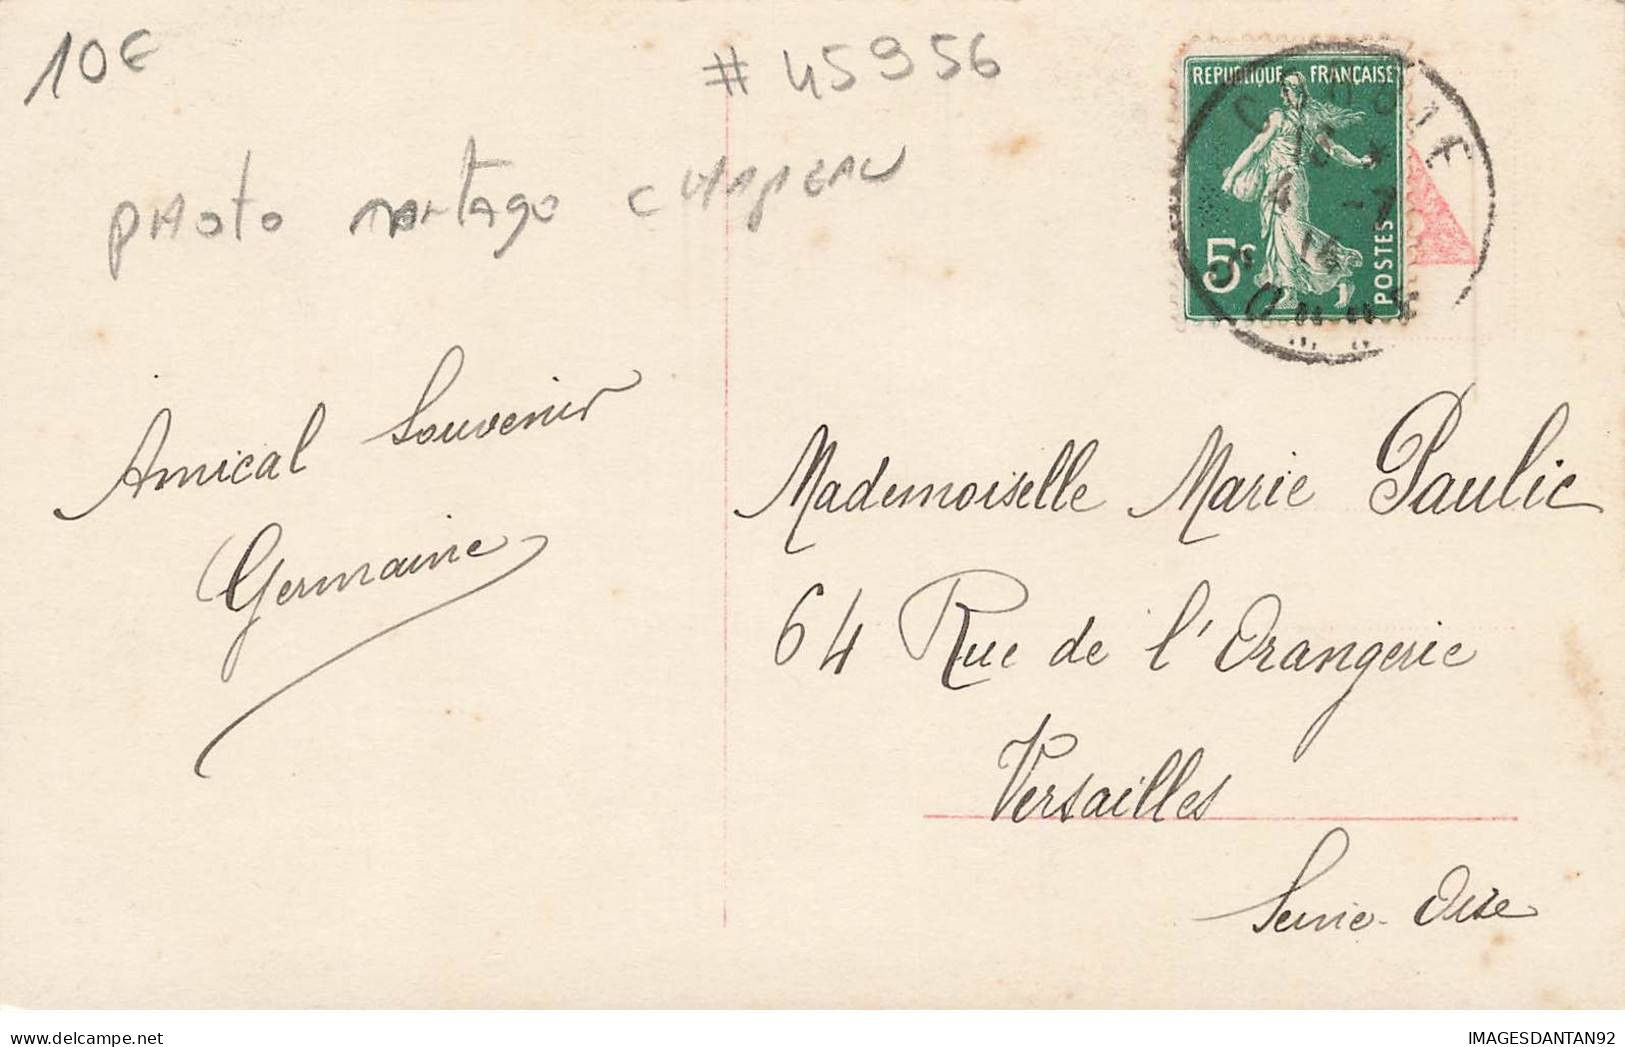 10€
# 45956
PHOTO montage CHAPEAU
REPUBLIQUE FRANÇAISE
5c
POSTES
COUHE
4 -7
14
Amical Souvenir
Germaine
Mademoiselle Marie Paulic
64 Rue de l'Orangerie
Versailles
Seine-Oise
IMAGESDANTAN92